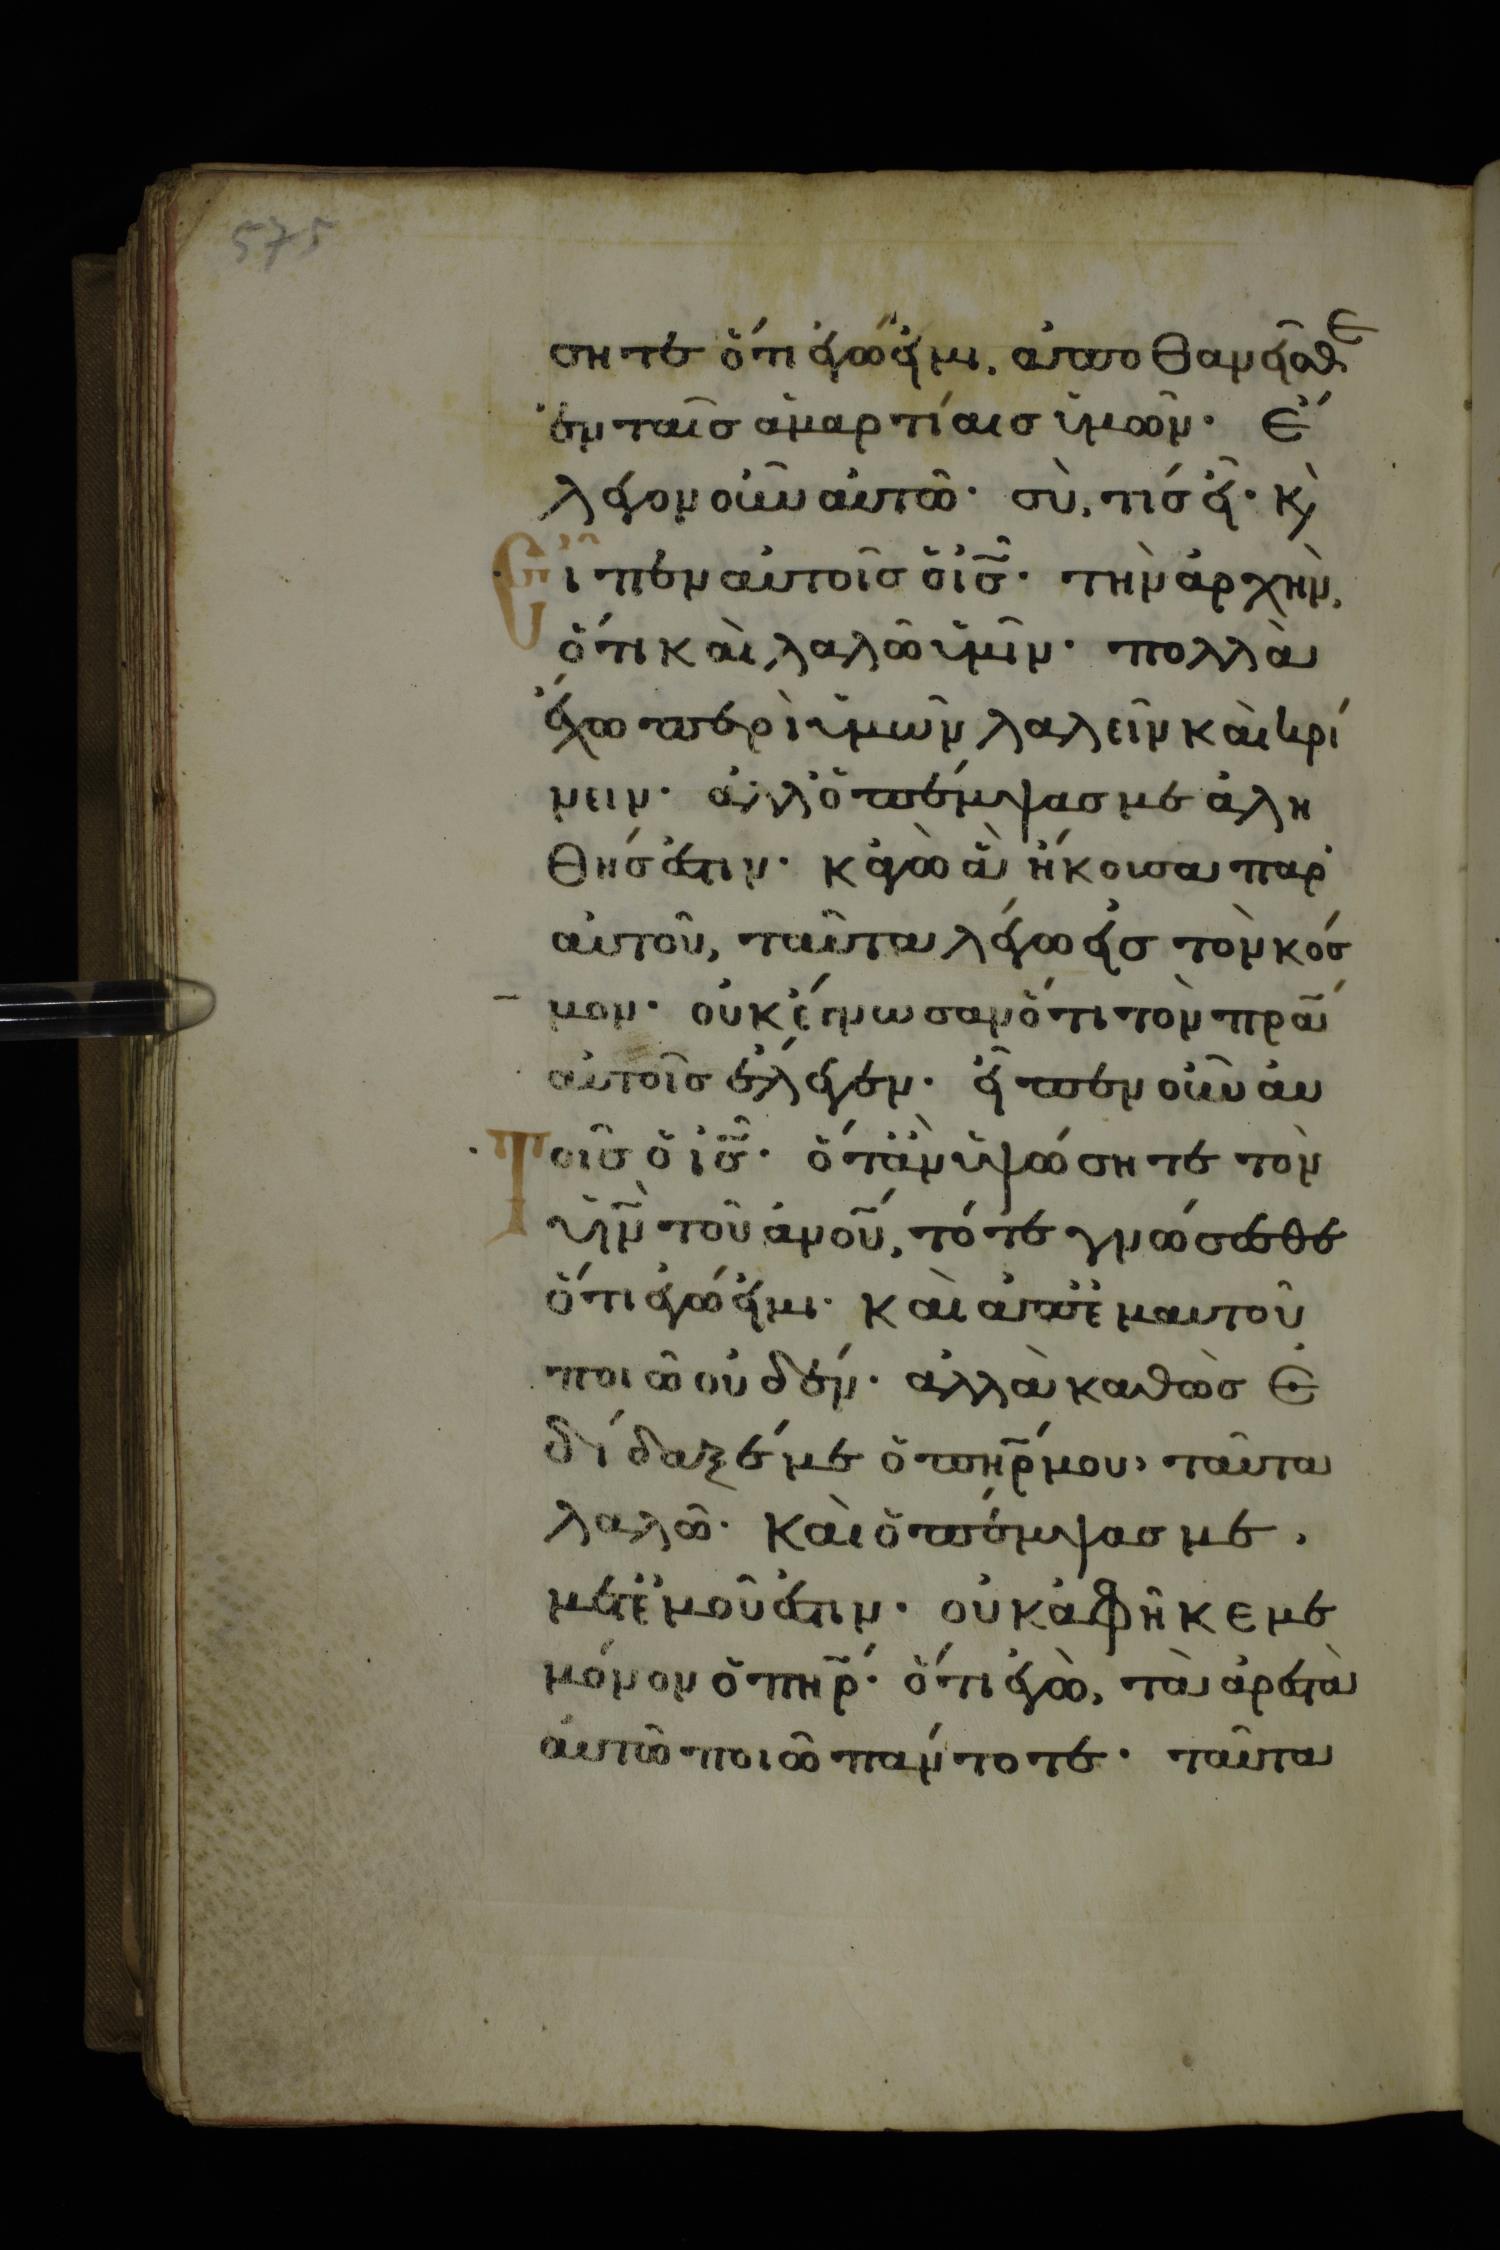 575
σητε ὅτι ἐγώ εἰμι, ἀποθανεῖσθε
ἐν ταῖς ἁμαρτίαις ὑμῶν· ἔ
λεγον οὖν αὐτῶ· σὺ, τίς εἶ· κ̀
εἶπεν αὐτοῖς ὁ ἰ̅ς̅· τὴν ἀρχὴν,
ὅτι καὶ λαλῶ ὑμῖν· πολλὰ
ἔχω περὶ ὑμῶν λαλεῖν καὶ κρί
νειν· ἀλλ' ὁ πέμψας με ἀλη
θής ἐστιν· κἀγὼ ἃ ἤκουσα παρ'
αὐτοῦ, ταῦτα λέγω εἰς τὸν κόσ
μον· οὐκ ἔγνωσαν ὅτι τὸν π̅ρ̅α̅
αὐτοῖς ἔλεγεν· εἶπεν οὖν αὐ
τοῖς ὁ ἰ̅ς̅· ὅταν ὑψώσητε τὸν
υ̅ν̅ τοῦ α̅ν̅ο̅υ̅, τότε γνώσεσθε
ὅτι ἐγώ εἰμι· καὶ ἀπ' ἐμαυτοῦ
ποιῶ οὐδέν· ἀλλὰ καθὼς ἐ
δίδαξέ με ὁ π̅η̅ρ̅ μου, ταῦτα
λαλῶ· καὶ ὁ πέμψας με,
μετ' ἐμοῦ ἐστιν· οὐκ ἀφῆκε με
μόνον ὁ π̅η̅ρ̅· ὅτι ἐγὼ, τὰ ἀρεστὰ
αὐτῶ ποιῶ πάντοτε· ταῦτα